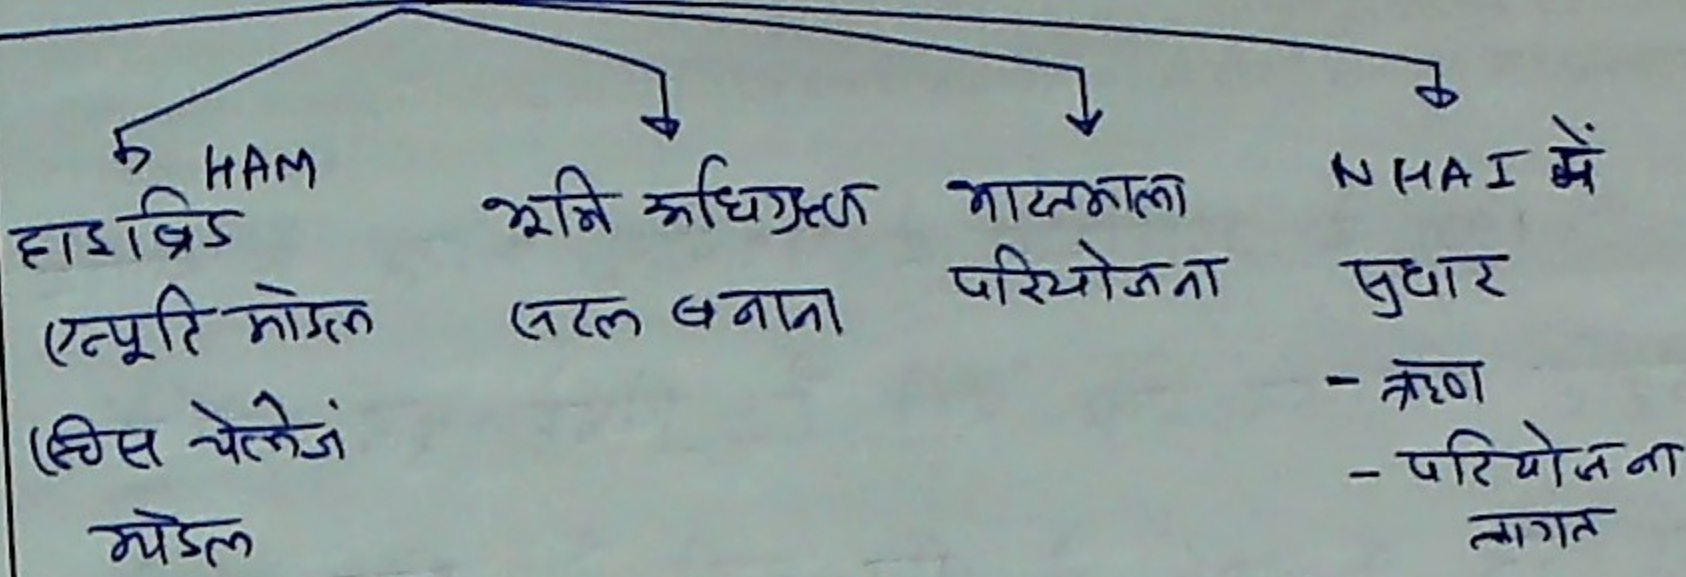 HAM
हाइब्रिड
एन्यूटि मॉडल
स्विस चेलेंज
मॉडल
भूमि अधिग्रहण
सरल बनाना
भारतमाला
परियोजना
NHAI में
सुधार
- ऋण
- परियोजना
लागत